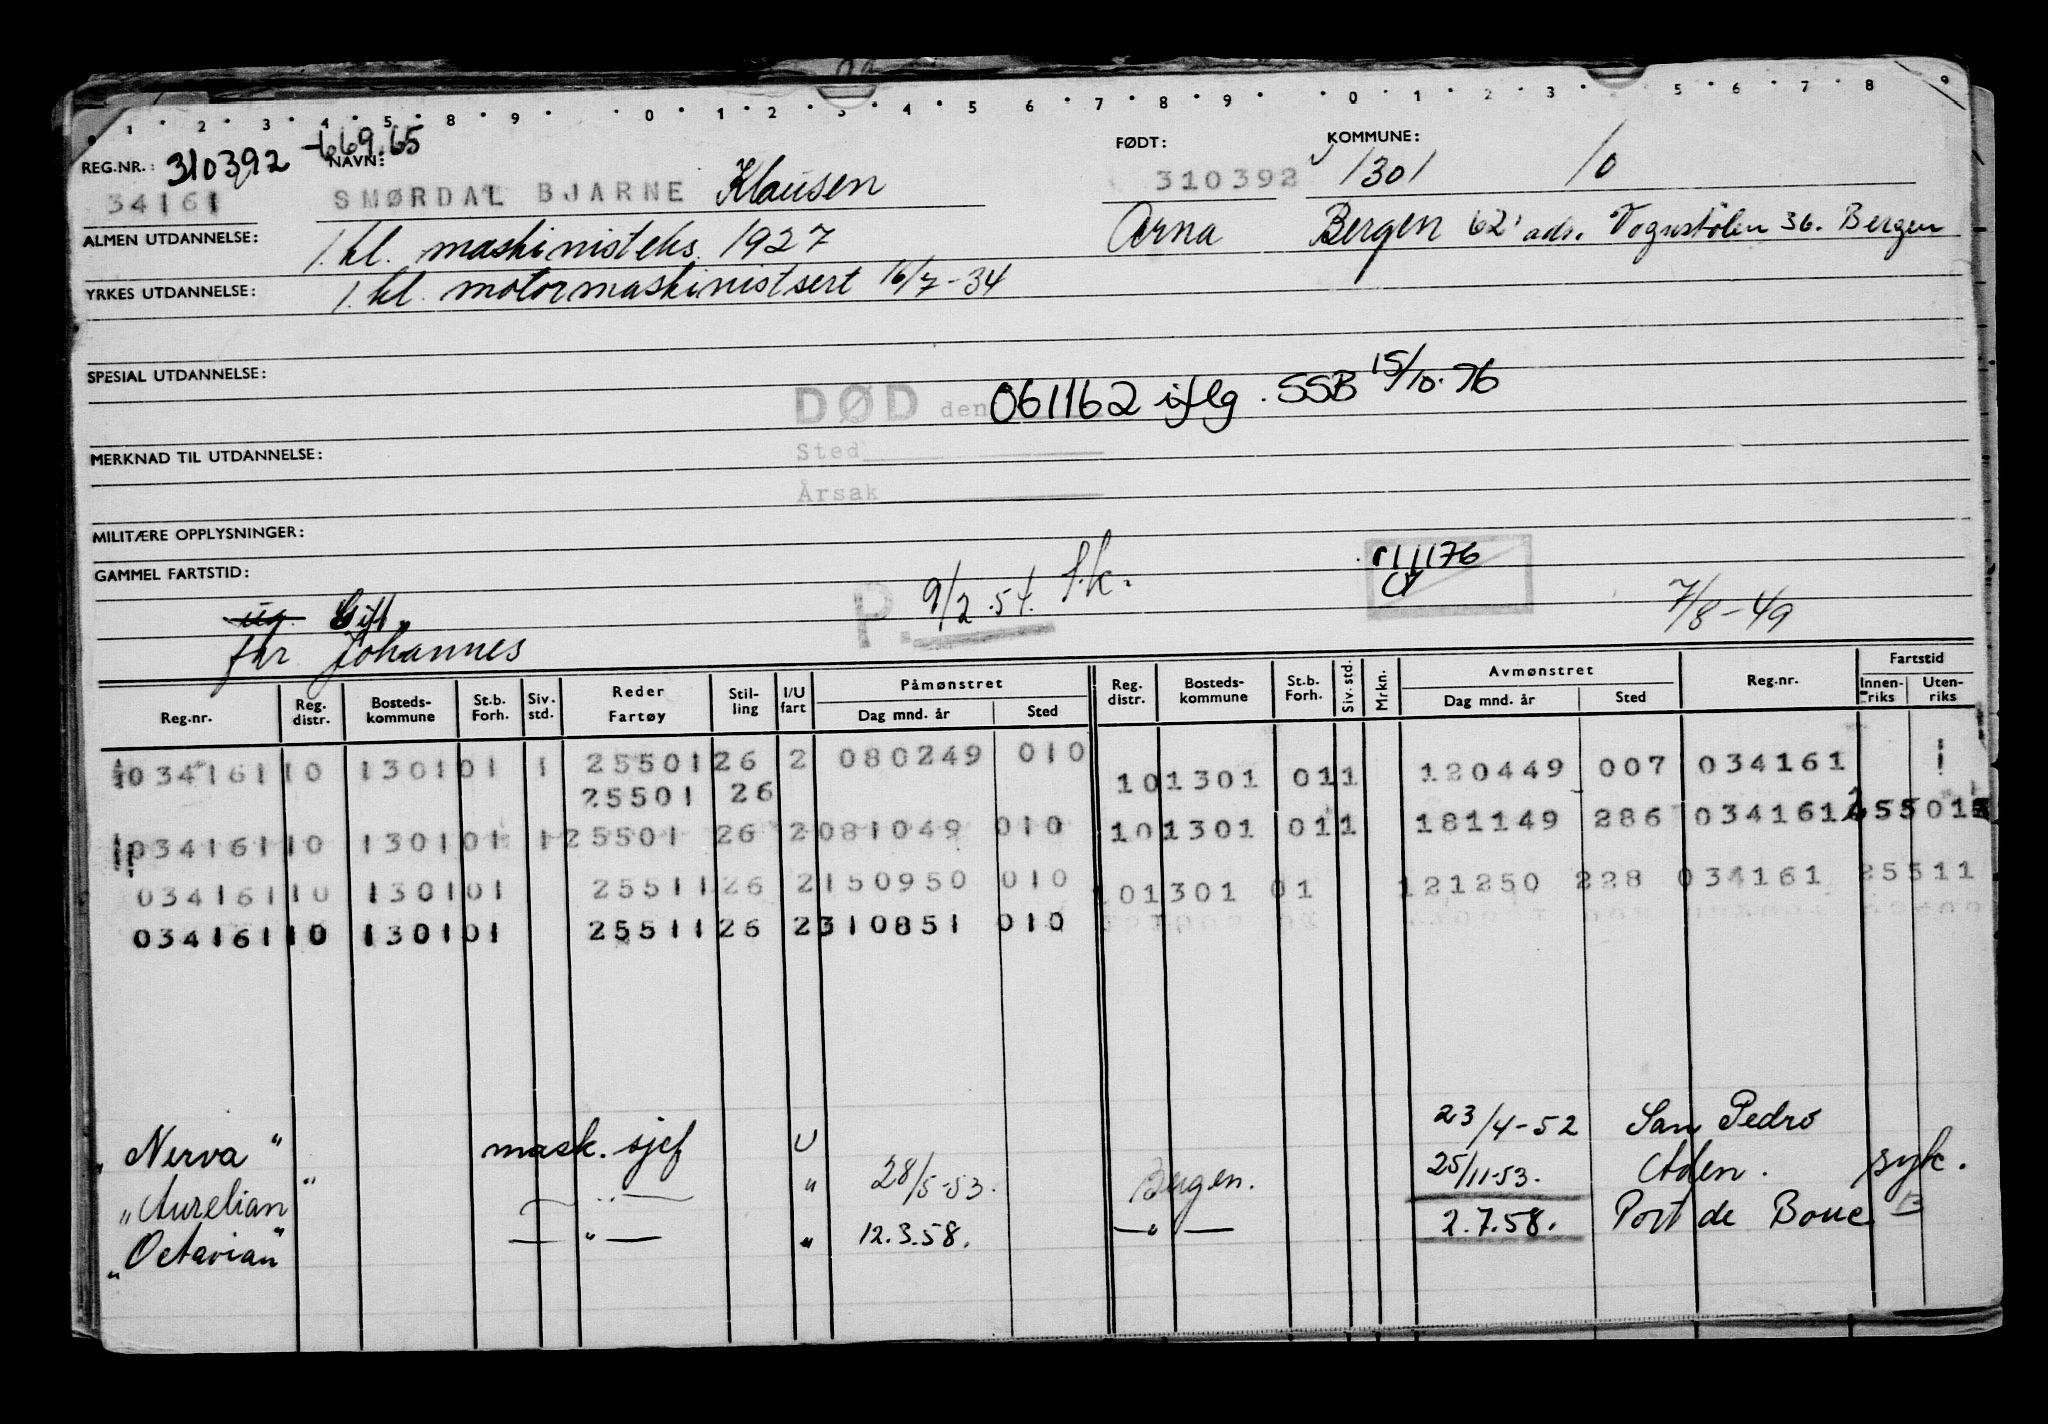 1 2 3 4 5 8 9 0 1 2 3 4 5 6 7 8 9 0 1 2 3 5 6 7 8 9
REG.NR.: 310392 -669.65 NAVN: FØDT: KOMMUNE:
34161 SMØRDAL BJARNE Klausen 310392 1301 10
ALMEN UTDANNELSE: 1. kl. maskinisteks. 1927 Arna Bergen 62' adr. Vognstølen 36. Bergen
YRKES UTDANNELSE: 1. kl. motormaskinistsert 16/7-34
SPESIAL UTDANNELSE:
DØD den 061162 iflg. SSB 15/10-76
MERKNAD TIL UTDANNELSE: Sted
Årsak
MILITÆRE OPPLYSNINGER:
GAMMEL FARTSTID: P. 9/2.54. f.k. 111176 7/8-49
ug. Gift.
far Johannes
Reg.nr. Reg. distr. Bosteds-kommune St.b. Forh. Siv. std. Reder Fartøy Stil-ling I/U fart Påmønstret Dag mnd. år Sted Reg. distr. Bosteds-kommune St.b. Forh. Siv. std. Mrkn. Avmønstret Dag mnd. år Sted Reg.nr. Fartstid Innen-riks Uten-riks
034161 10 1301 01 1 25501 26 2 080249 010 10 1301 01 1 120449 007 034161
25501 26
034161 10 1301 01 1 25501 26 2 081049 010 10 1301 01 1 181149 286 034161 25501
034161 10 1301 01 25511 26 2 150950 010 10 1301 01 121250 228 034161 25511
034161 10 1301 01 25511 26 2 310851 010
"Nerva" mask. sjef U 23/4-52 San Pedro
"Aurelian" — " — " 28/5-53. Bergen. 25/11-53. Aden. syk.
"Octavian" — " — " 12.3.58. — " — 2.7.58. Port de Bouc